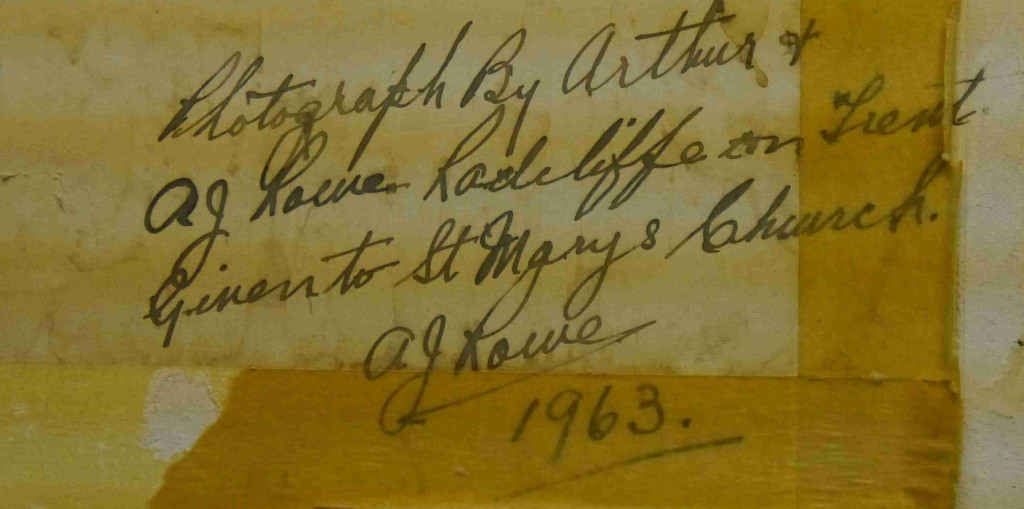 Photograph By Arthur &
AJ Rowe Radcliffe on Trent.
Given to St Marys Church.
AJ Rowe
1963.